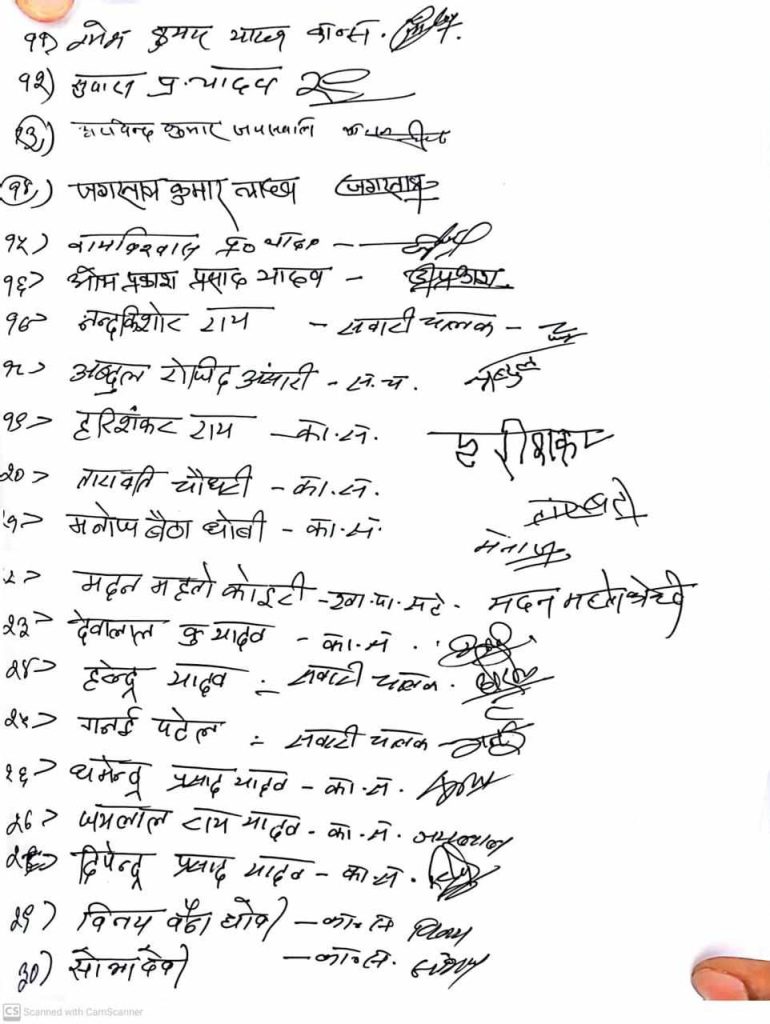 ११) रमेश कुमार यादव का॰स.
१२) सुवास प्र. यादव
१३) कुमार जयसवाल
१४) जगरनाथ कुमार यादव जगरनाथ
१५) रामविश्वास प्र० यादव -
१६> ओम प्रकाश प्रसाद यादव - ओमप्रकाश
१७> नन्दकिशोर राय - सवारी चालक -
१८> अब्दुल अंसारी - स.च. अब्दुल
१९> हरिशंकर राय - का.स. हरीशंकर
२०> तारावति चौधरी - का.स.
मनोज बैठा धोबी - का.स. मनोज
मदन महतो कोइरी मदन महतो
२३> देवलाल कु यादव - का.स.
२४> यादव - सवारी चालक.
२५> गनई पटेल - सवारी चालक
२६> धर्मेन्द्र प्रसाद यादव - का.स.
२७> जयलाल राय यादव - का.स. जयलाल
२८> दिपेन्द्र प्रसाद यादव - का.स.
२९) विनय बैठा धोबी - का॰स विनय
३०) सोभा देवी - का॰स.
CS Scanned with CamScanner